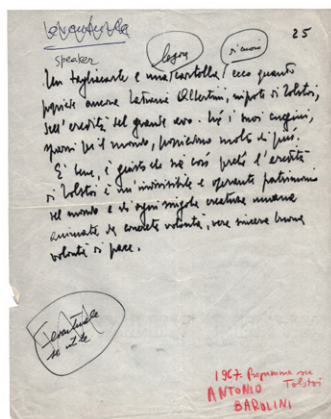 25
speaker
Un tagliacarte e una cartolla! ecco quanto
possiede ancora Tatiana Albertini, nipote di Tolstoi,
dell'eredità del grande avo. Né i suoi cugini,
sparsi per il mondo, possiedono molto di più.
E' bene, è giusto che sia così perché l'eredità
di Tolstoi è un invisibile e operante patrimonio
del mondo e di ogni singola creatura umana
animata da concreta volontà, vera sincera buona
volontà di pace.
se utile
1967. Programma su
Tolstoi
ANTONIO
BAROLINI